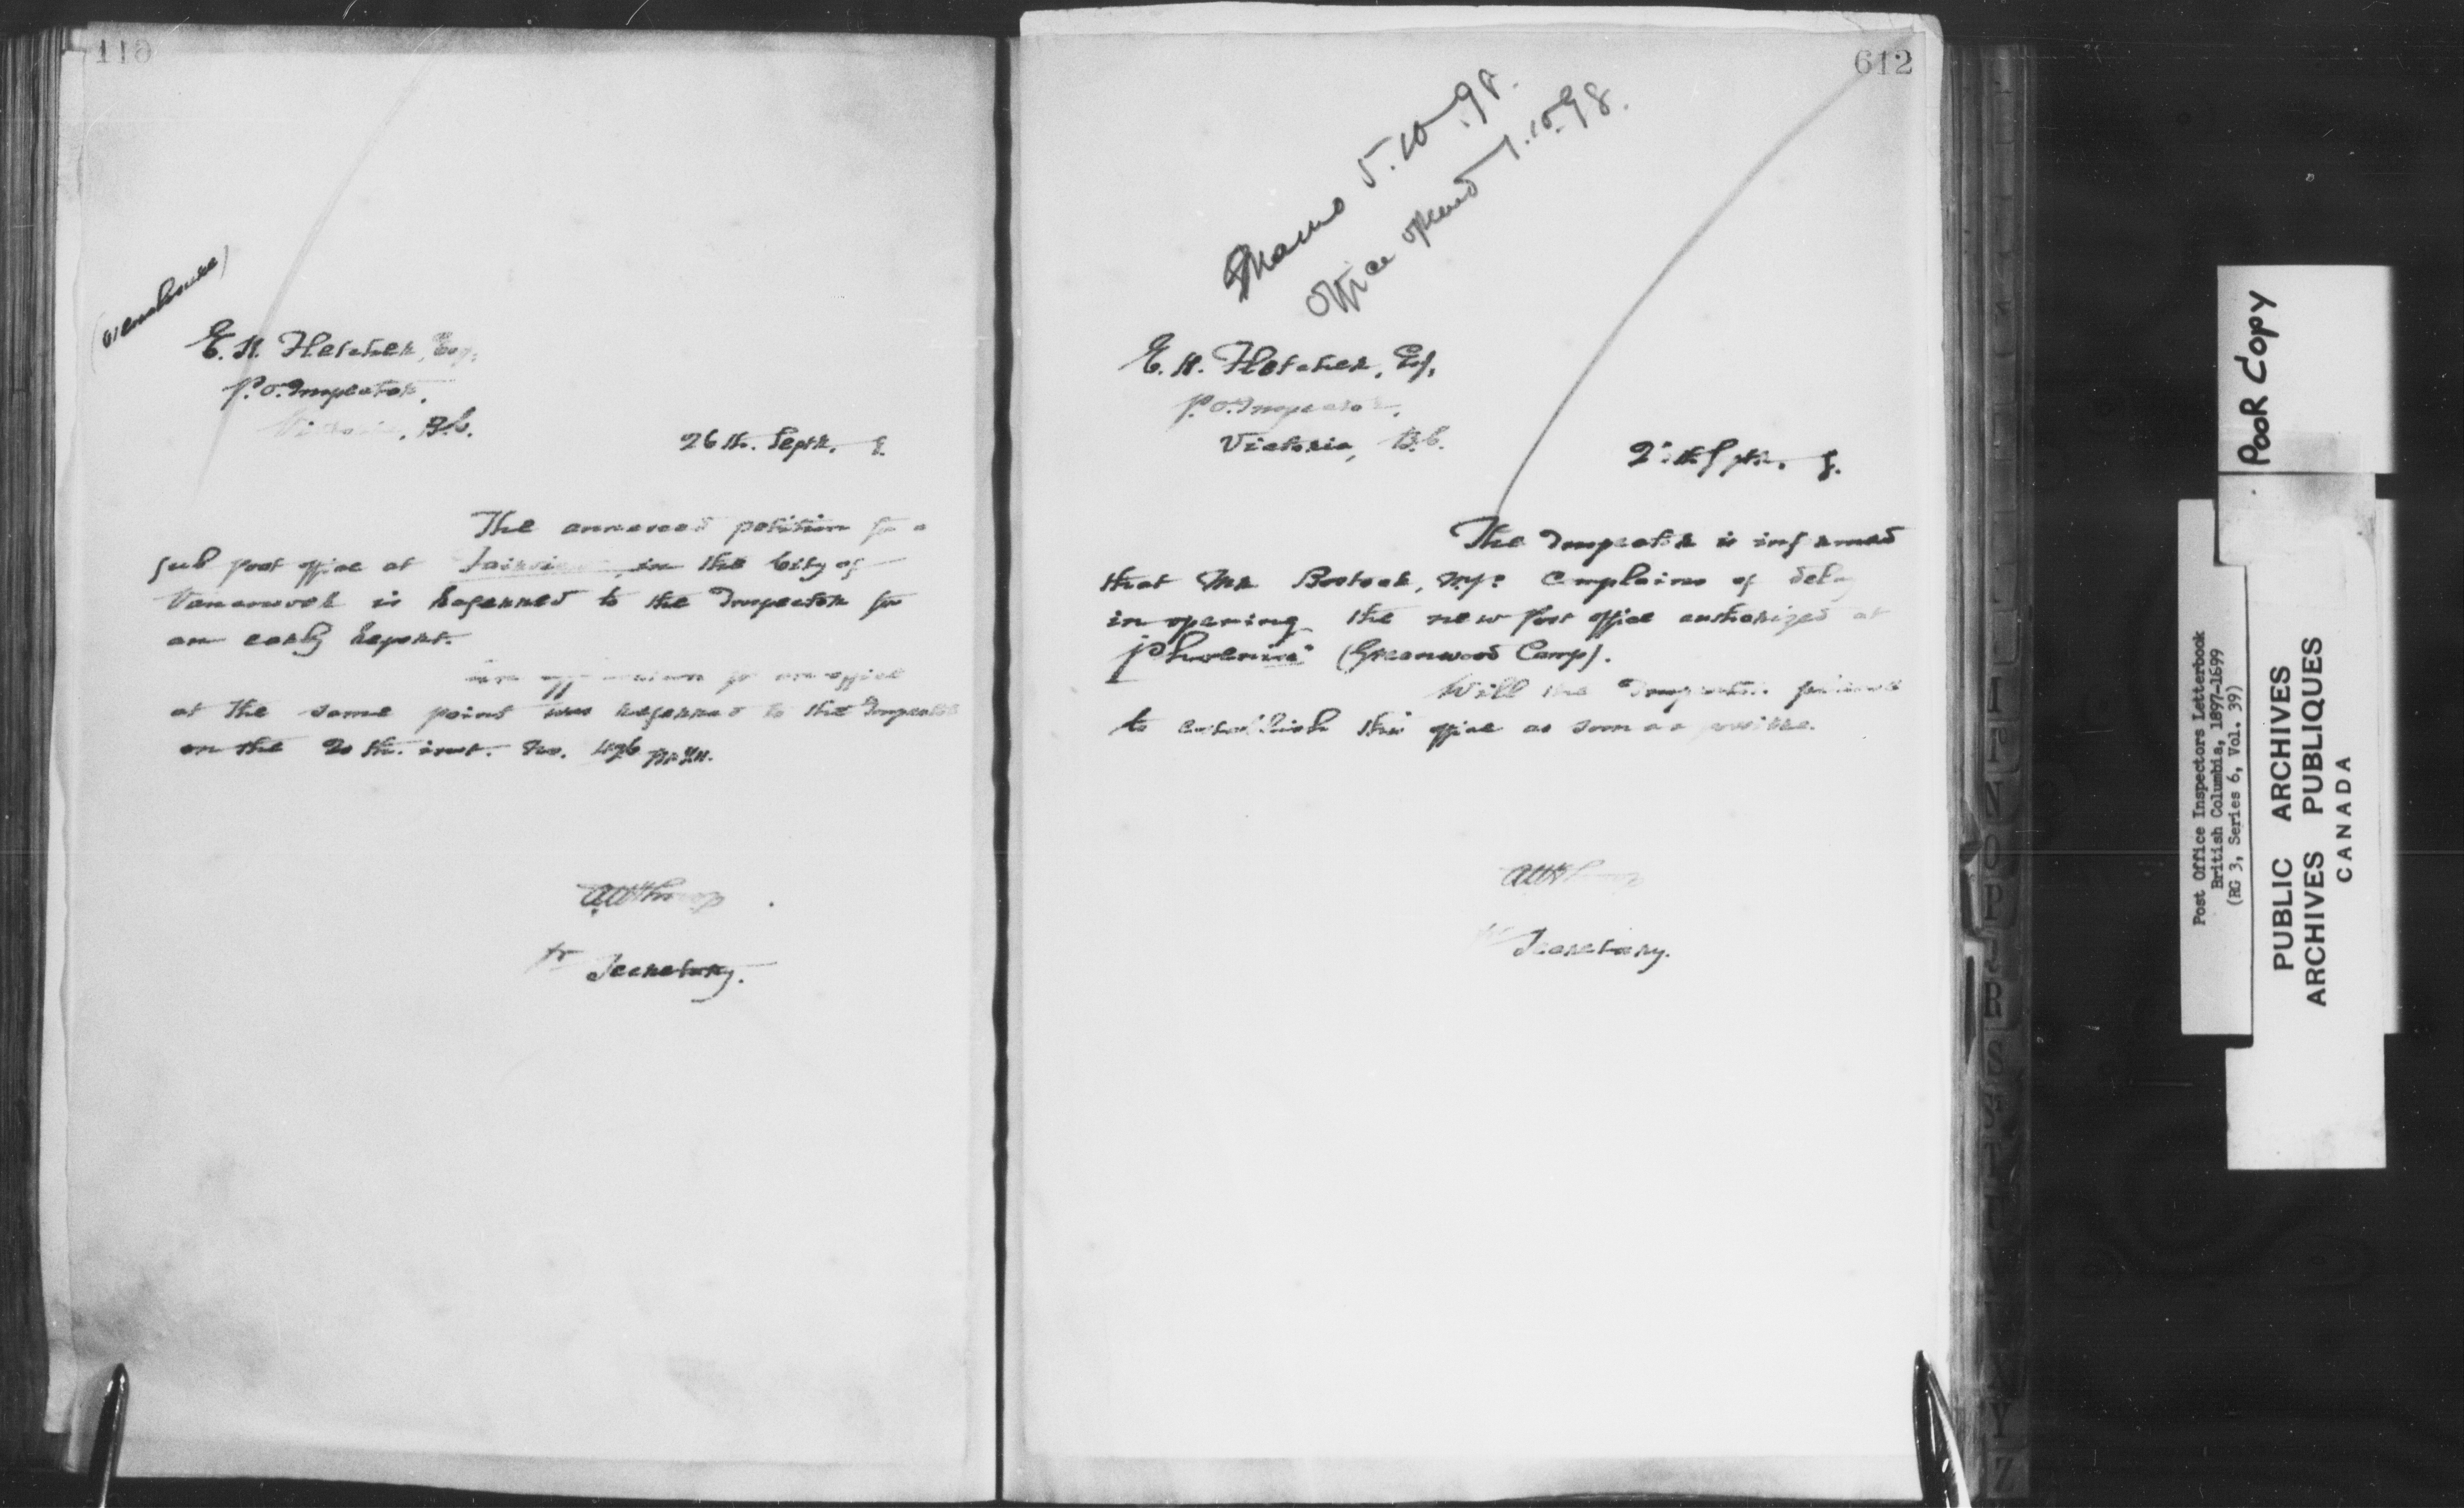 116
(enclosure)
E. H. Fletcher, Esq.
P. O. Inspector,
Victoria, B.C.
26th. Septr. 8.
The annexed petition for a
sub post office at Fairview, in the City of
Vancouver is referred to the Inspector for
an early report.
An application for an office
at the same point was referred to the Inspector
on the 20th. inst. No. 496
for Secretary.
612
Memo 5.10.98.
Office opened 1.10.98.
E. H. Fletcher, Esq,
P. O. Inspector,
Victoria, B.C.
Septr. 8.
The Inspector is informed
that Mr Bostock, M.P. complains of delay
in opening the new Post office authorized at
"Phoenix" (Greenwood Camp).
Will the Inspector please
to establish this office as soon as possible.
Secretary.
POOR COPY
Post Office Inspectors Letterbook
British Columbia, 1897-1899
(RG 3, Series 6, Vol. 39)
PUBLIC ARCHIVES
ARCHIVES PUBLIQUES
CANADA